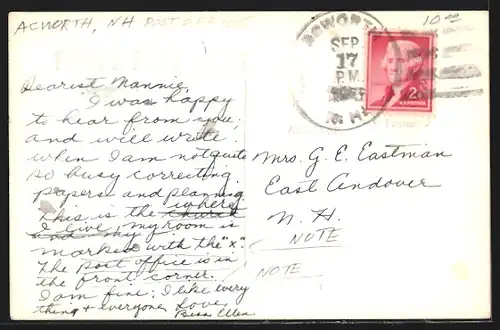 ACWORTH, NH POST OFFICE
10.00
ACWORTH
SEP
17
P.M.
N.H.
2¢
JEFFERSON
Dearest Nannie,
I was happy
to hear from you,
and will write
when I am not quite
so busy correcting
papers and planning.
This is the where church
I live, and my my room is
marked with the "x".
The post office is in
the front corner.
I am fine; I like every
thing + everyone. Love,
Ellen.
Mrs. G. E. Eastman
East Andover
N. H.
NOTE
NOTE